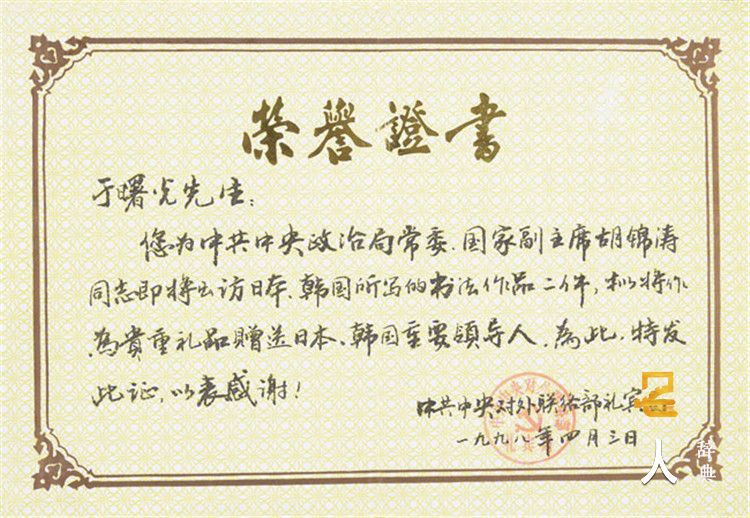 荣誉證书
于曙光先生：
您为中共中央政治局常委、国家副主席胡锦涛
同志即将出访日本、韩国所写的书法作品二件，拟将作
為貴重礼品赠送日本、韩国重要領导人。為此，特发
此证，以表感谢！
中共中央对外联络部礼宾
一九九八年四月三日
人
辞典